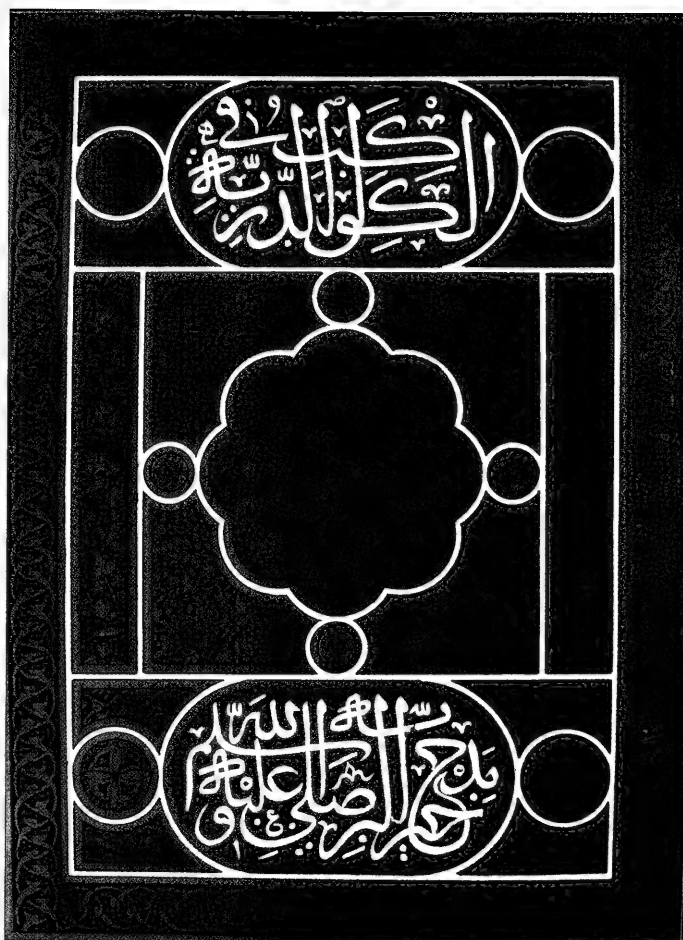 الكواكب الدرية في
مدح خير البرية صلى الله عليه وسلم